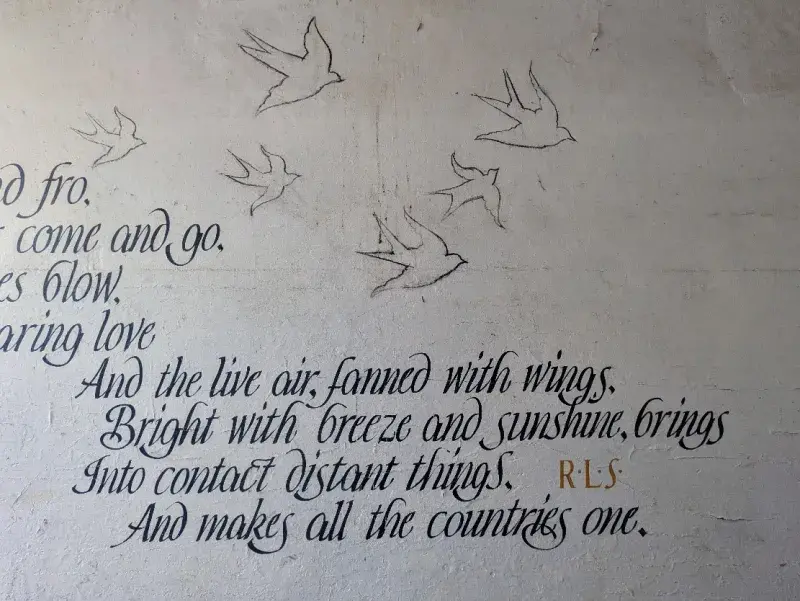 d fro.
come and go.
es blow.
aring love
And the live air, fanned with wings,
Bright with breeze and sunshine, brings
Into contact distant things. R·L·S·
And makes all the countries one.